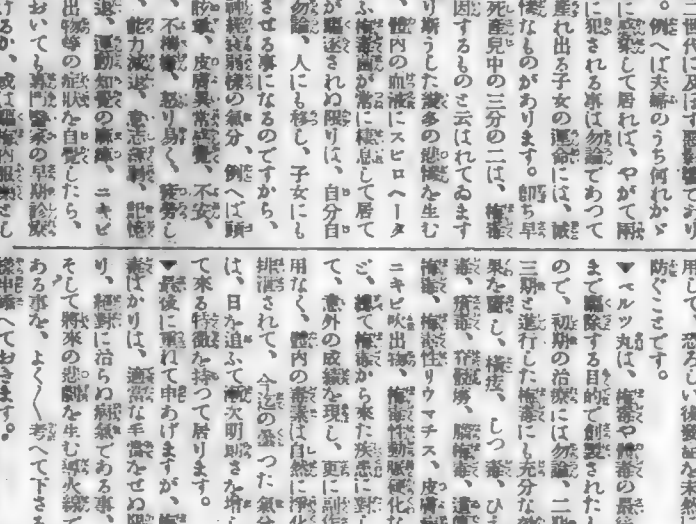 三世代に及ぼす悪影響であり
。例へば夫婦のうち何れかゞ
に感染して居れば、やがて両
に犯される事は勿論であつて
産れ出る子女の運命には、誠
惨なものがあります。即ち早
死産児中の三分の二は、梅毒
因するものと云はれてゐます
り斯うした幾多の悲惨を生む
、体内の血液にスピロヘータ
ふ梅毒菌が常に棲息して居て
が駆逐されぬ限りは、自分自
勿論、人にも移し、子女にも
させる事になるのですから、
神経衰弱様の気分、例へば頭
眩暈、皮膚異常知覚、不安、
、不機嫌、怒り易く、疲労し
、能力減退、意志薄弱、記憶
退、運動知覚の麻痺、ニキビ
出物等の症状を自覚したら、
おいても専門医家の早期診療
けるか、或は駆梅内服薬さし
用して、恐ろしい後
防ぐことです。
▼ベルツ丸は、梅毒や淋毒の最
まで駆除する目的で創製された
ので、初期の治療には勿論、二
三期と進行した梅毒にも充分な
果を齎し、横痃、しつ毒、ひえ
毒、瘡毒、骨髄癆、脳梅毒、遺
梅毒、梅毒性リウマチス、皮膚
ニキビ吹出物、梅毒性動脈硬化な
ど、総て梅毒から来た疾患に対し
て、意外の成績を現し、更に副作
用なく、体内の毒素は自然に浄化
排泄されて、今迄の曇つた気分
は、日を追ふて漸次明朗さを増し
て来る特徴を持つて居ります。
▼最後に重ねて申あげますが、梅
毒ばかりは、適当な手当をせぬ限
り、絶対に治らぬ病気である事、
そして将来の悲劇を生む導火線で
ある事を、よく〳〵考へて下さる
様申添へておきます。